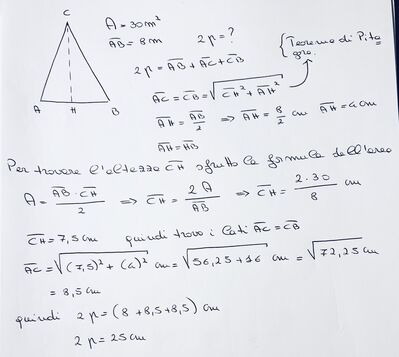 C
A H B
A = 30 m²
AB = 8 m 2p = ?
2p = AB + AC + CB
Teorema di Pitagora.
AC = CB = √(CH² + AH²)
AH = AB/2 ⇒ AH = 8/2 cm AH = 4 cm
AH = HB
Per trovare l'altezza CH sfrutto la formula dell'area
A = (AB · CH)/2 ⇒ CH = 2A/AB ⇒ CH = (2·30)/8 cm
CH = 7,5 cm quindi trovo i lati AC = CB
AC = √((7,5)² + (4)²) cm = √(56,25 + 16) cm = √72,25 cm
= 8,5 cm
quindi 2p = (8 + 8,5 + 8,5) cm
2p = 25 cm